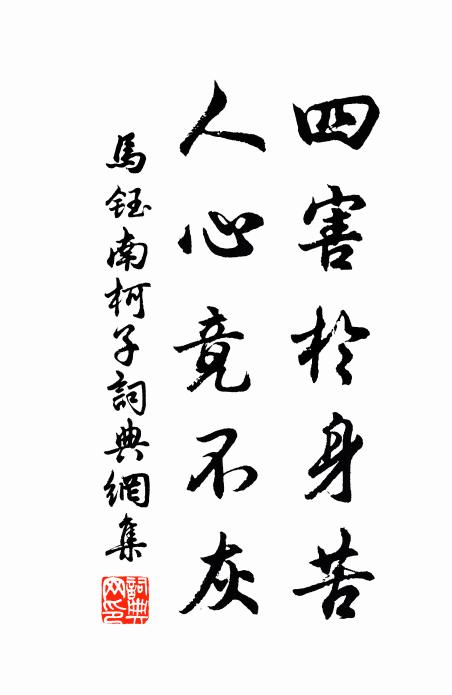 四害於身苦
人心竟不灰
馬鈺南柯子詞典網集
詞典网印